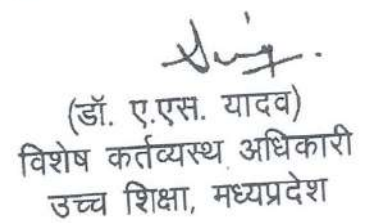 (डॉ. ए.एस. यादव)
विशेष कर्तव्यस्थ अधिकारी
उच्च शिक्षा, मध्यप्रदेश